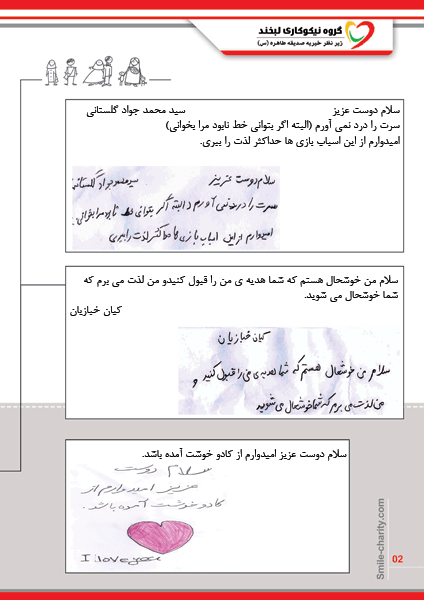 گروه نیکوکاری لبخند
زیر نظر خیریه صدیقه طاهره (س)
سلام دوست عزیز سید محمد جواد گلستانی
سرت را درد نمی آورم (البته اگر بتوانی خط نابود مرا بخوانی)
امیدوارم از این اسباب بازی ها حداکثر لذت را ببری.
سلام دوست عزیز سید محمد جواد گلستانی
سرت را درد نمی آورم (البته اگر بتوانی خط نابود مرا بخوانی)
امیدوارم از این اسباب بازی ها حداکثر لذت را ببری
سلام من خوشحال هستم که شما هدیه ی من را قبول کنیدو من لذت می برم که
شما خوشحال می شوید.
کیان خبازیان
کیان خبازیان
سلام من خوشحال هستم که شما هدیه ی من را قبول کنید و
من لذت می برم که شما خوشحال می شوید
سلام دوست عزیز امیدوارم از کادو خوشت آمده باشد.
سلام دوست
عزیز امیدوارم از
کادو خوشت آمده باشد.
I love you
Smile-charity.com
02